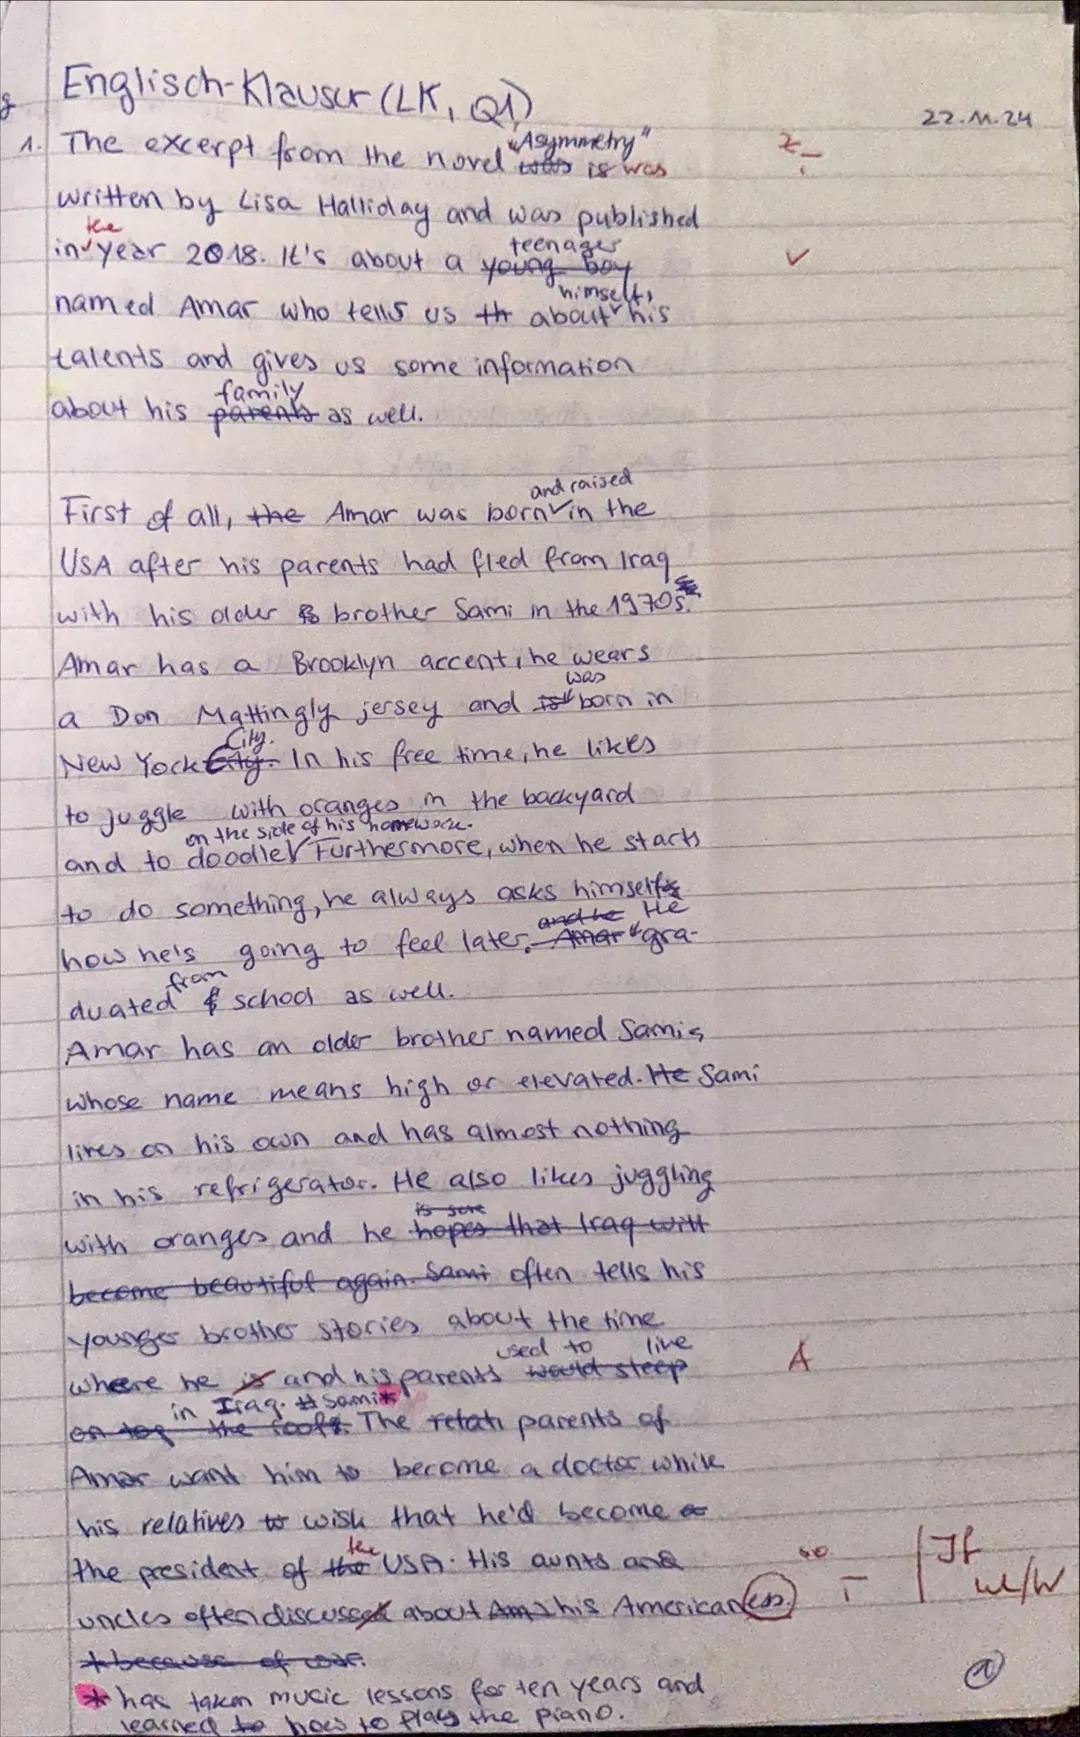 Englisch-Klausur (LK, Q1)
22.11.24
1. The excerpt from the novel "Asymmetry" was is was
written by Lisa Halliday and was published
in the year 2018. It's about a young boy teenager
named Amar who tells us th about himself, his
talents and gives us some information
about his parents family as well.
First of all, the Amar was born and raised in the
USA after his parents had fled from Iraq
with his older brother Sami in the 1970s.
Amar has a Brooklyn accent, he wears
a Don Mattingly jersey and is was born in
New York City. City. In his free time, he likes
to juggle with oranges in the backyard
and to doodle on the side of his homework. Furthermore, when he starts
to do something, he always asks himself
how he's going to feel later. and he Amar He gra-
duated from school as well.
Amar has an older brother named Sami,
whose name means high or elevated. He Sami
lives on his own and has almost nothing
in his refrigerator. He also likes juggling
with oranges and he hopes that Iraq will is sure
become beautiful again. Sami often tells his
younger brother stories about the time
where he is and his parents would sleep used to live
on top the roofs. in Iraq. Sami* The relati parents of
Amar want him to become a doctor while
his relatives to wish that he'd become a
the president of the the USA. His aunts and
uncles often discussed about Am his Americaness.
so
If
w/W
Z
A
* because of war.
* has taken music lessons for ten years and
learned to how to play the piano.
1